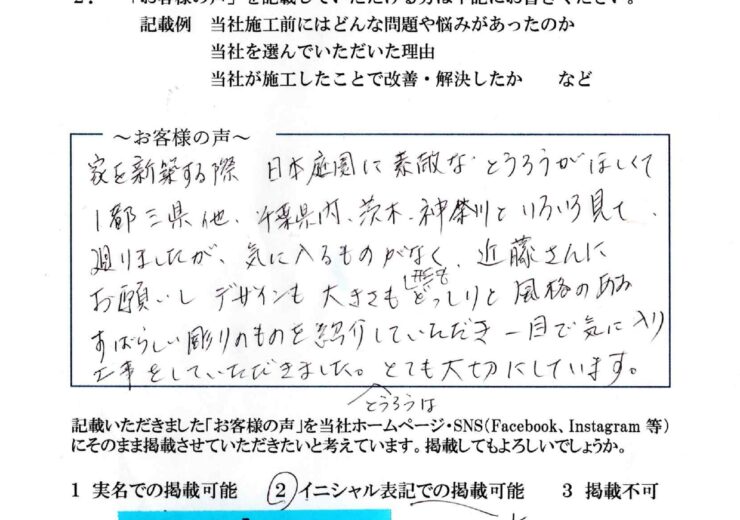 2. 「お客様の声」を記載していただける方は下記にお書きください。
記載例 当社施工前にはどんな問題や悩みがあったのか
当社を選んでいただいた理由
当社が施工したことで改善・解決したか など
～お客様の声～
家を新築する際 日本庭園に素敵なとうろうがほしくて
1都三県他、千葉県内、茨木、神奈川といろいろ見て、
廻りましたが、気に入るものがなく、近藤さんに
お願いし デザインも 大きさも どっしりと 風格のある
すばらしい彫りのものを紹介していただき 一目で気に入り
工事をしていただきました。とても大切にしています。
とうろうは
記載いただきました「お客様の声」を当社ホームページ・SNS(Facebook、Instagram 等)
にそのまま掲載させていただきたいと考えています。掲載してもよろしいでしょうか。
1 実名での掲載可能 2 イニシャル表記での掲載可能 3 掲載不可